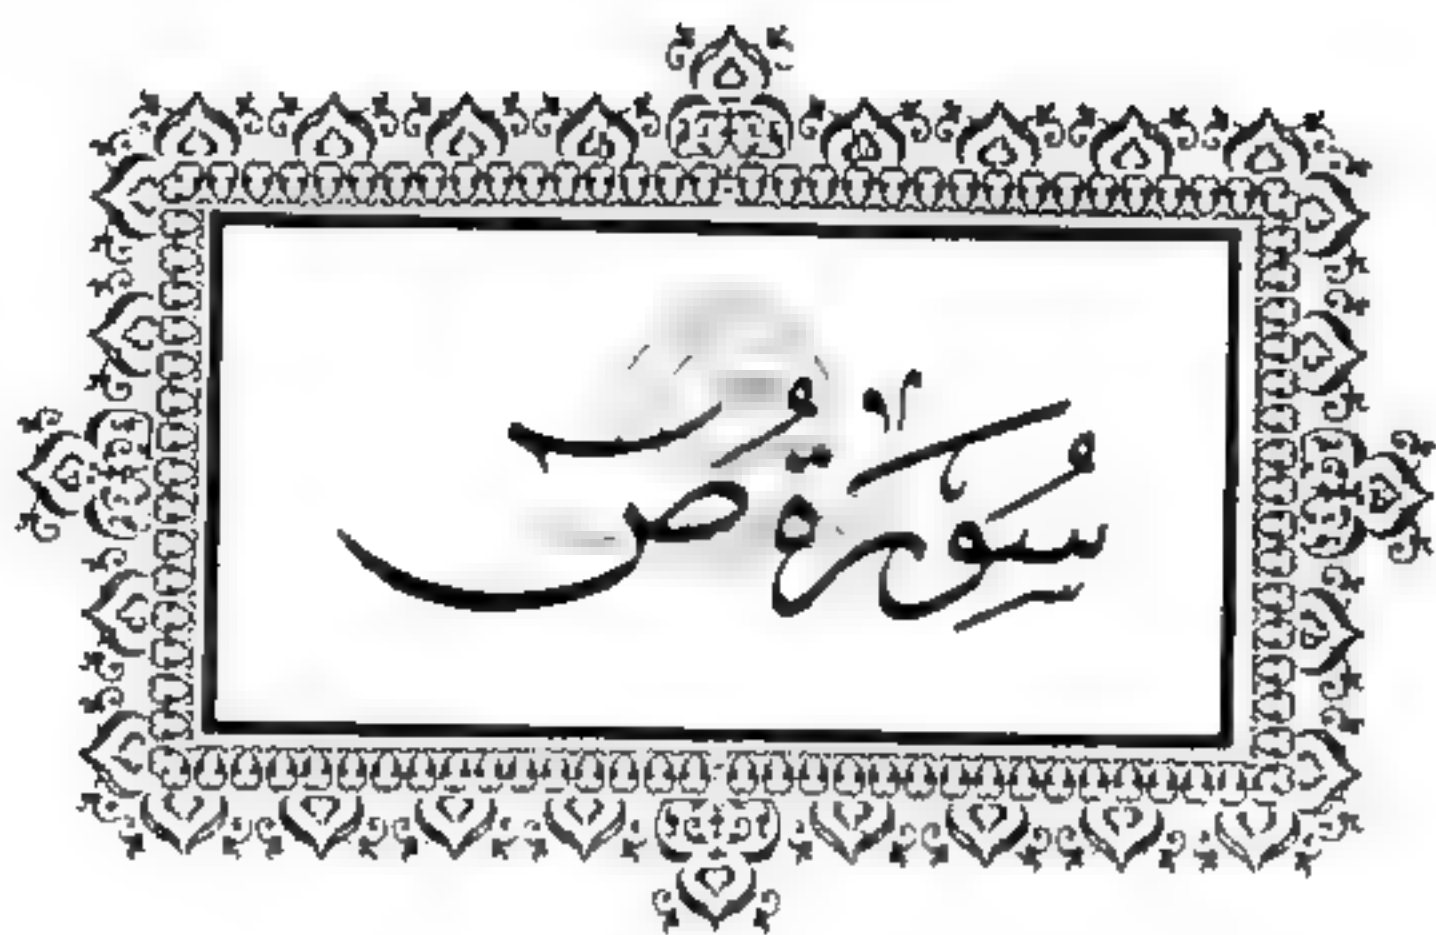 سُورَةُ ص